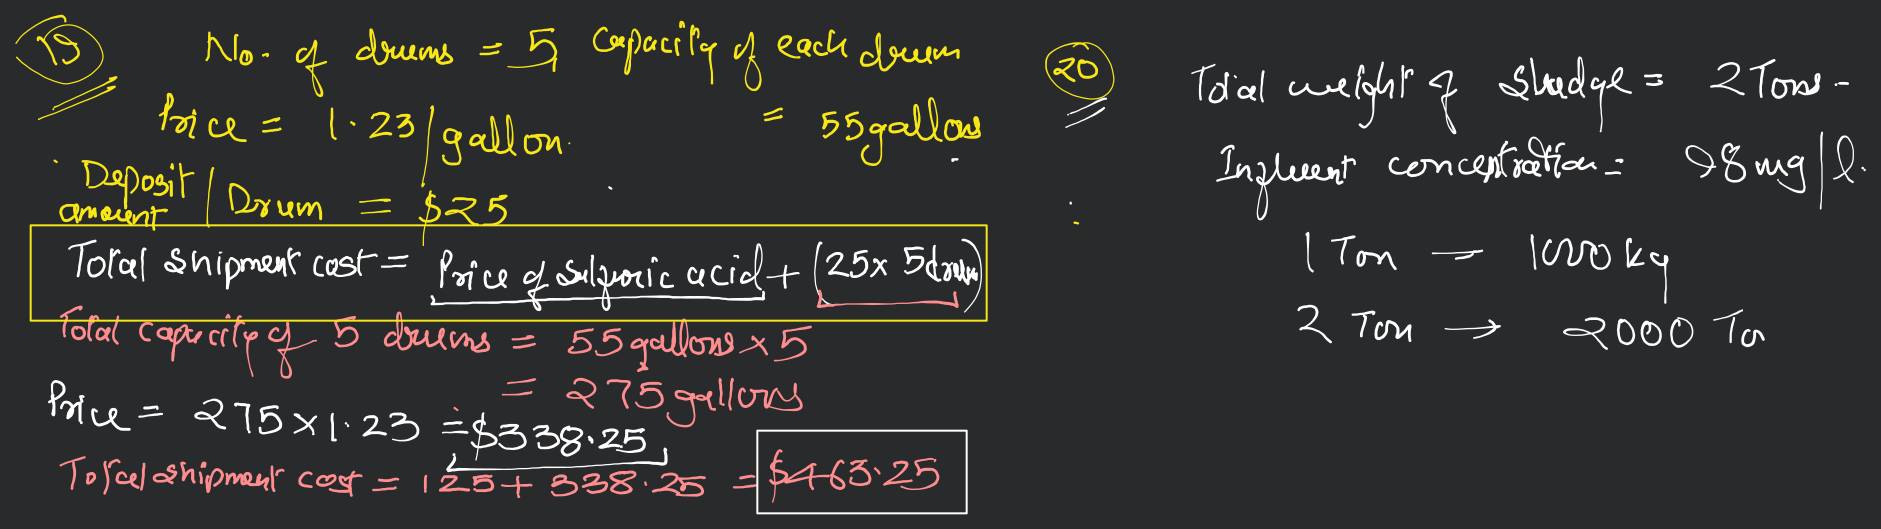 19
No. of drums = 5 capacity of each drum
= 55gallons
Price = 1.23/gallon.
Deposit amount / Drum = $25
Total shipment cost = Price of sulfuric acid + (25x 5drum)
Total capacity of 5 drums = 55gallons x 5
= 275gallons
Price = 275x1.23 = $338.25
Total shipment cost = 125+ 338.25 = $463.25
20
Total weight of sludge = 2 Tons.
Influent concentration = 98mg/l.
1 Ton — 1000kg
2 Ton → 2000 To